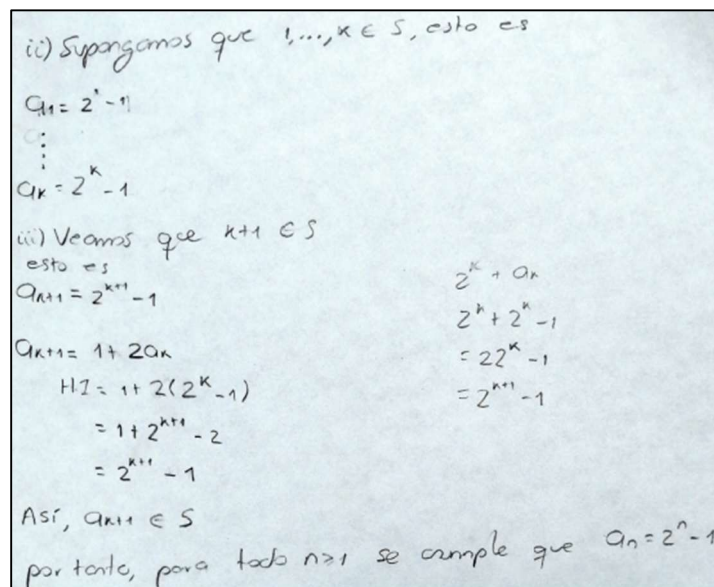 ii) Supongamos que 1,...,k ∈ S, esto es
a₁ = 2¹ - 1
⋮
aₖ = 2ᵏ - 1
iii) Veamos que k+1 ∈ S
esto es
aₖ₊₁ = 2ᵏ⁺¹ - 1
aₖ₊₁ = 1 + 2aₖ
HI = 1 + 2(2ᵏ - 1)
= 1 + 2ᵏ⁺¹ - 2
= 2ᵏ⁺¹ - 1
2ᵏ + aₖ
2ᵏ + 2ᵏ - 1
= 22ᵏ - 1
= 2ᵏ⁺¹ - 1
Así, aₖ₊₁ ∈ S
por tanto, para todo n≥1 se cumple que aₙ = 2ⁿ - 1